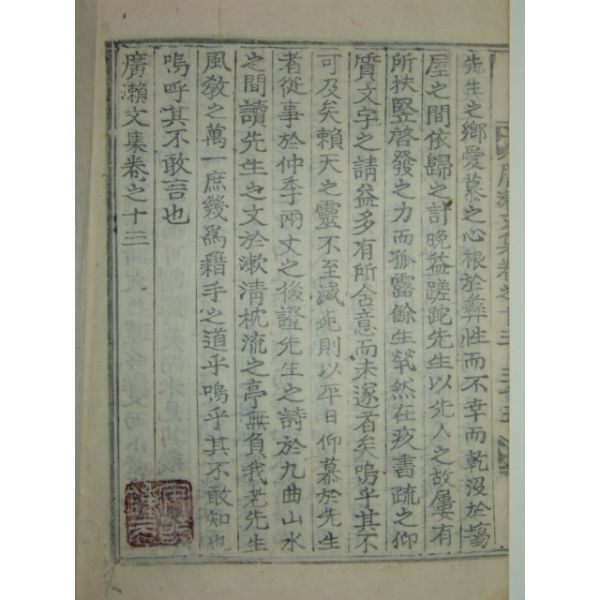 先生之鄉愛慕之心根於彜性而不幸而乾沒於場
屋之間依歸之計晩益蹉跎先生以先人之故屢有
所扶竪啓發之力而孤露餘生煢然在疚書疏之仰
質文字之請益多有所含意而未遂者矣嗚乎其不
可及矣賴天之靈不至滅死則以平日仰慕於先生
者從事於仲季兩丈之後證先生之詩於九曲山水
之間讀先生之文於漱淸枕流之亭無負我老先生
風敎之萬一庶幾爲藉手之道乎嗚乎其不敢知也
嗚呼其不敢言也
廣瀨文集卷之十三